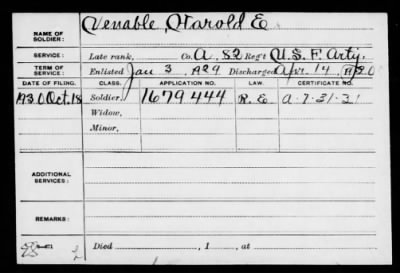 NAME OF SOLDIER: Venable, Harold E.
SERVICE: Late rank, Co. A, 82 Reg't U.S. F. Arty.
TERM OF SERVICE: Enlisted Jan 3, 1929 Discharged Apr. 14, 1930
DATE OF FILING. CLASS. APPLICATION NO. LAW. CERTIFICATE NO.
1930 Oct. 18 Soldier, 1679444 R.E. A-7-31-31
Widow,
Minor,
ADDITIONAL SERVICES:
REMARKS:
Died , 1 , at